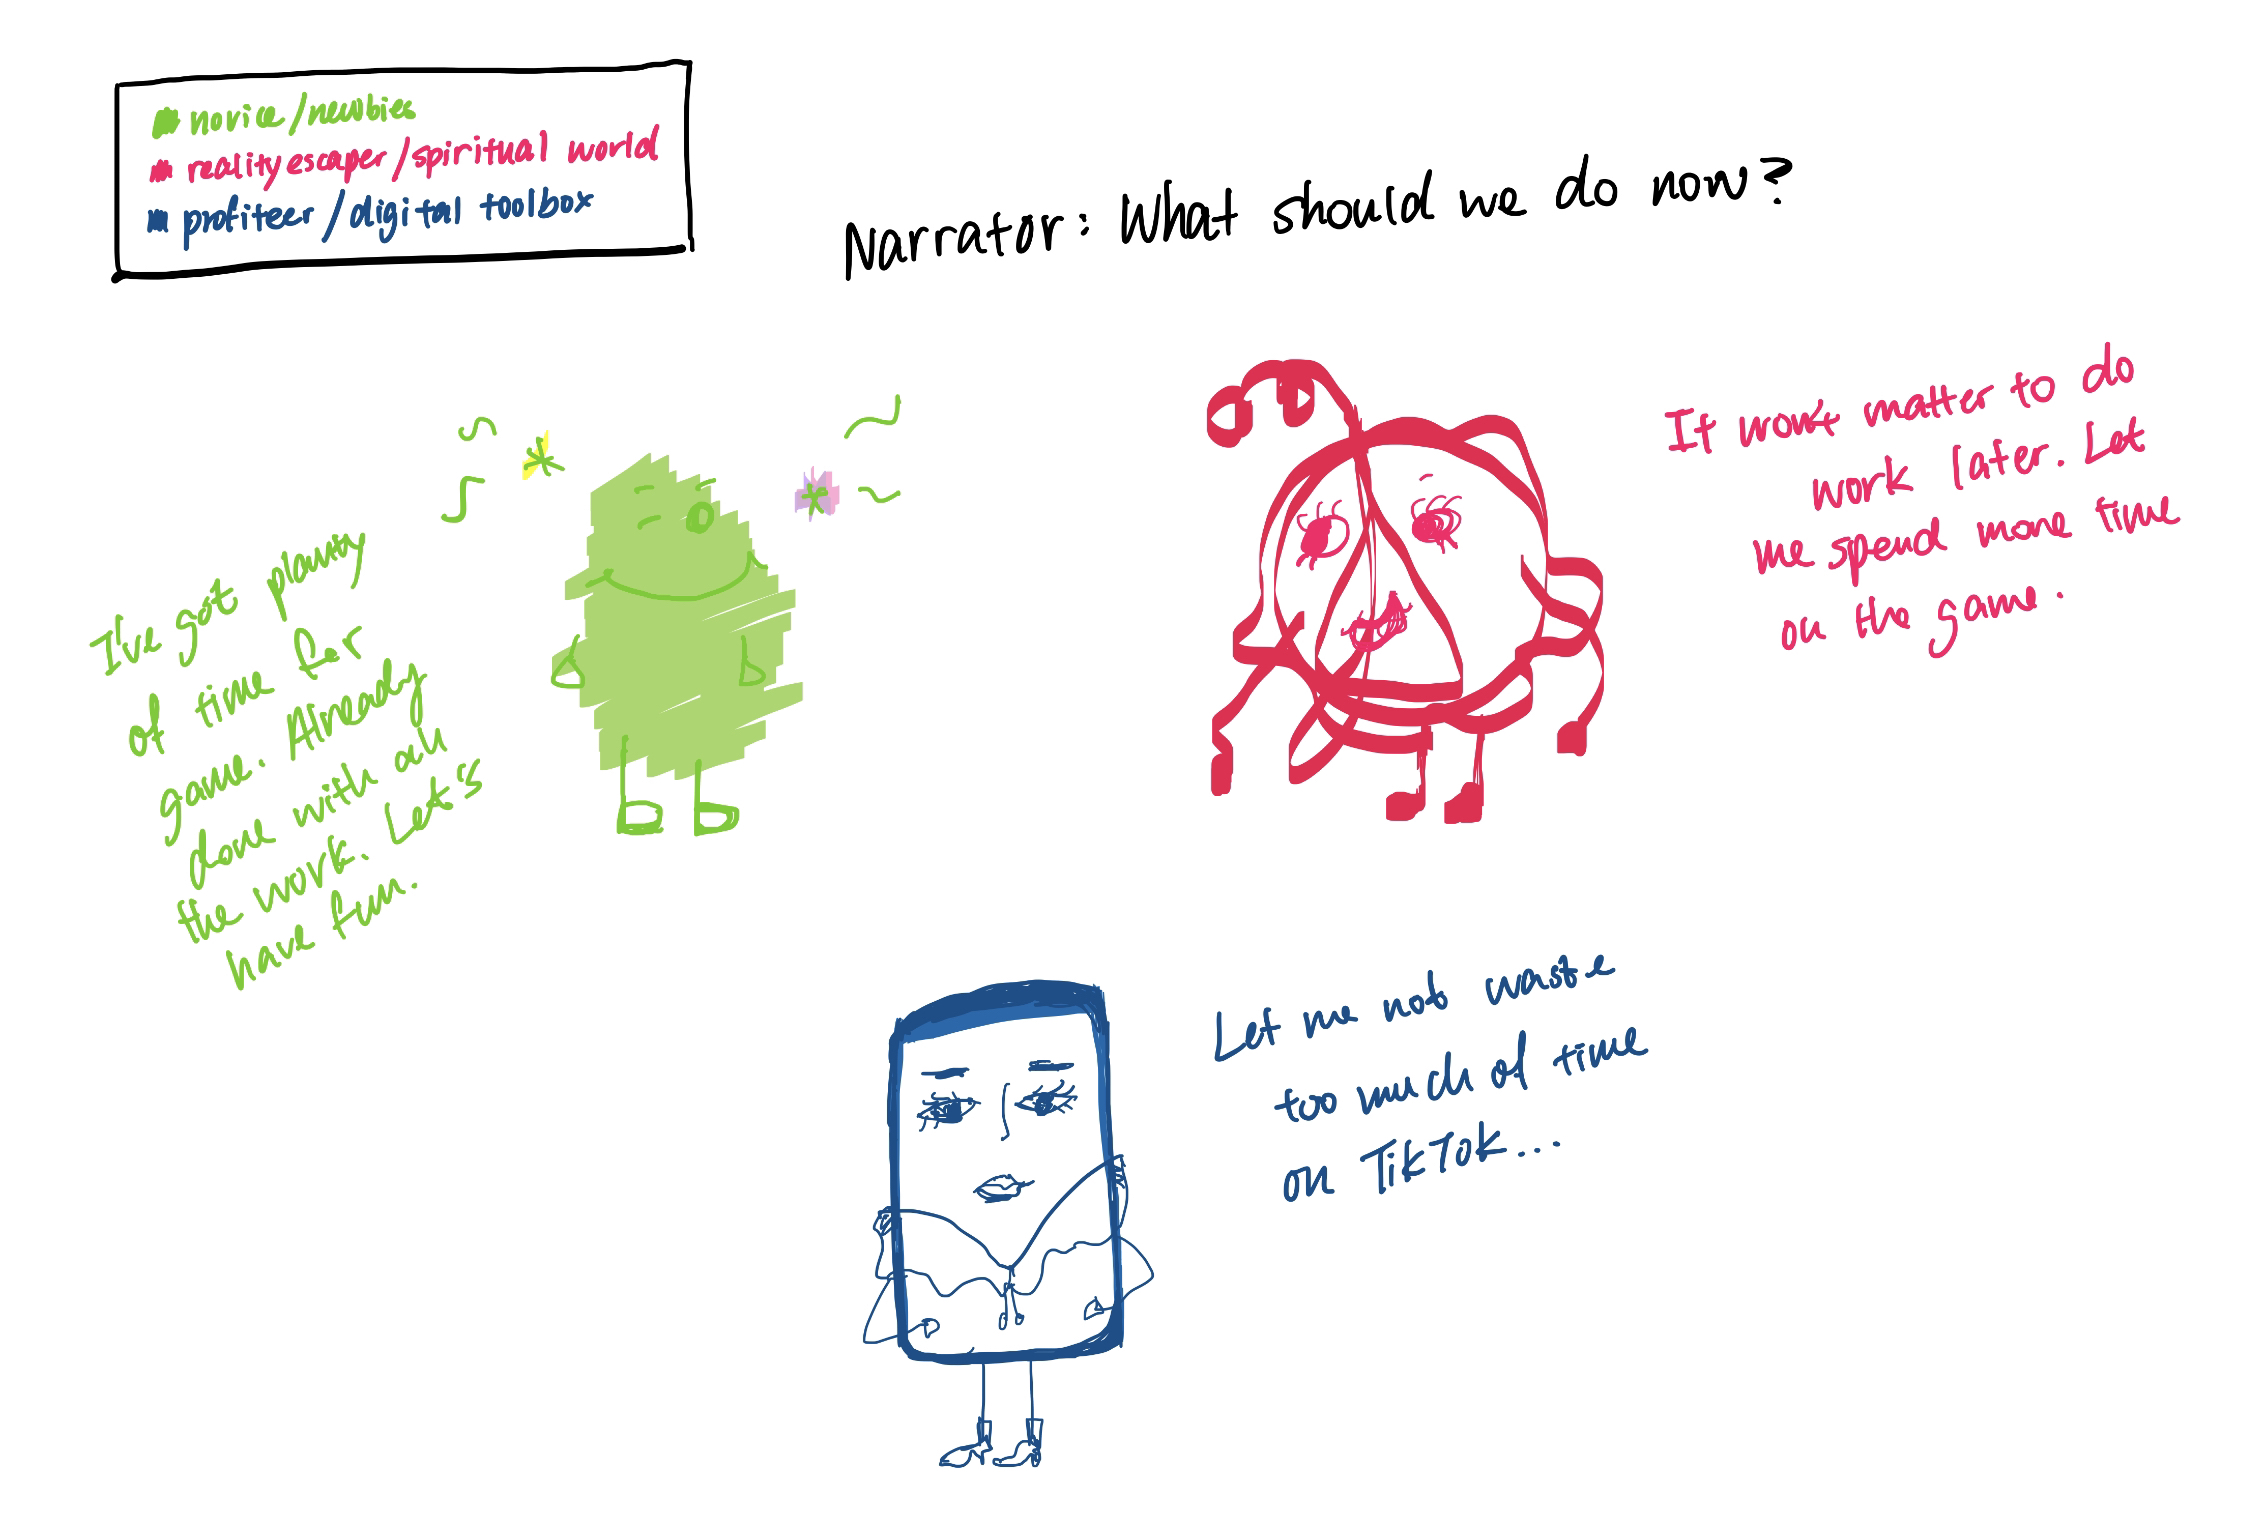 novice/newbies
reality escaper/spiritual world
profiteer/digital toolbox
Narrator: What should we do now?
I've got planty
of time for
game. Already
done with all
the work. Let's
have fun.
It won't matter to do
work later. Let
me spend more time
on the game.
Let me not waste
too much of time
on TikTok...